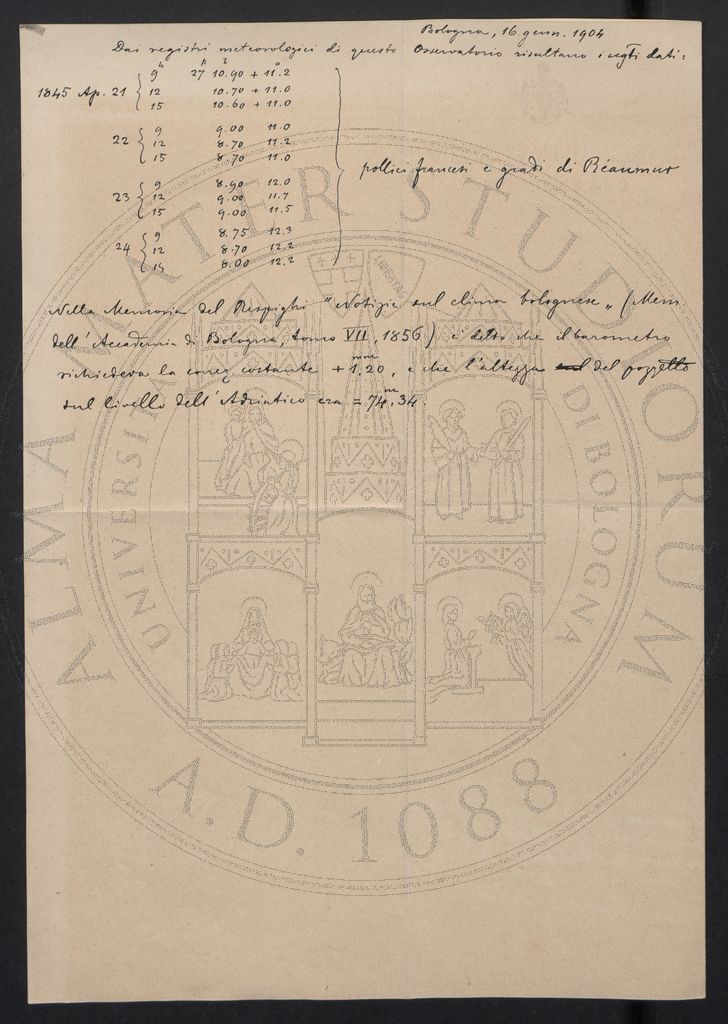 Bologna, 16 genn. 1904
Dai registri meteorologici di questo Osservatorio risultano i segti dati:
1845 Ap. 21 { 9h 27p 10.l90 + 11.°2
12 10.70 + 11.0
15 10.60 + 11.0
22 { 9 9.00 11.0
12 8.70 11.2
15 8.70 11.0
pollici francesi e gradi di Réaumur
23 { 9 8.90 12.0
12 9.00 11.7
15 9.00 11.5
24 { 9 8.75 12.3
12 8.70 12.2
15 8.00 12.2
Nella Memoria del Respighi "Notizie sul clima bolognese" (Mem.
dell'Accademia di Bologna, tomo VII, 1856) è detto che il barometro
richiedeva la correz costante + 1,mm20, e che l'altezza del pozzetto
sul livello dell'Adriatico era = 74,m34.
ALMA MATER STUDIORUM
UNIVERSITÀ DI BOLOGNA
A.D. 1088